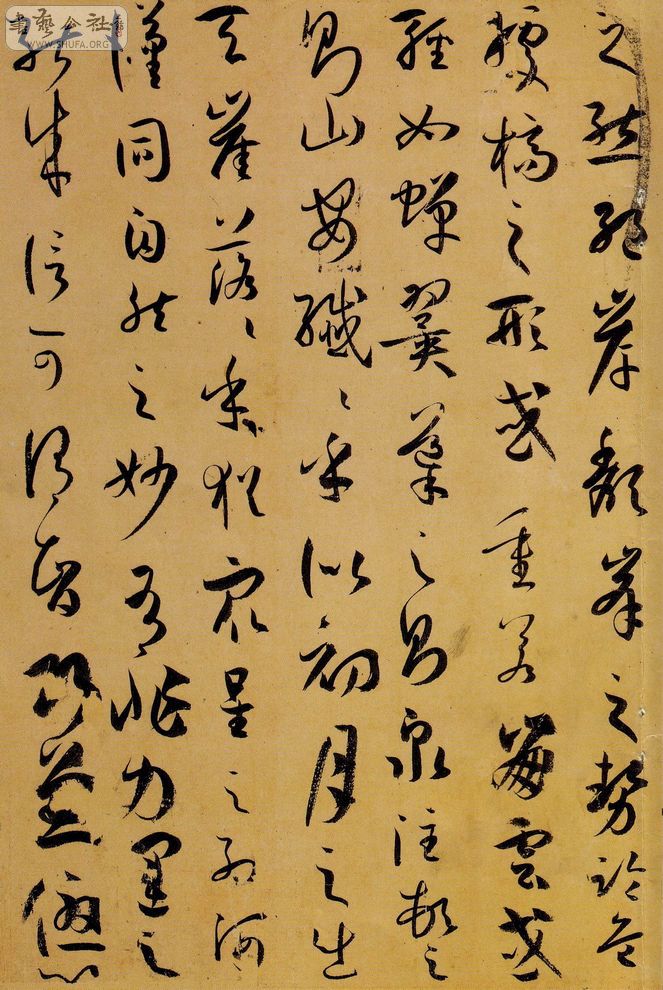 之態絕岸頹峯之勢臨危
據槁之形或重若崩雲或
輕如蟬翼導之則泉注頓之
則山安纖〻乎似初月之出
天崖落〻乎猶衆星之列河
漢同自然之妙有非力運之
能成信可謂智巧兼優心
書藝公社
WWW.SHUFA.ORG